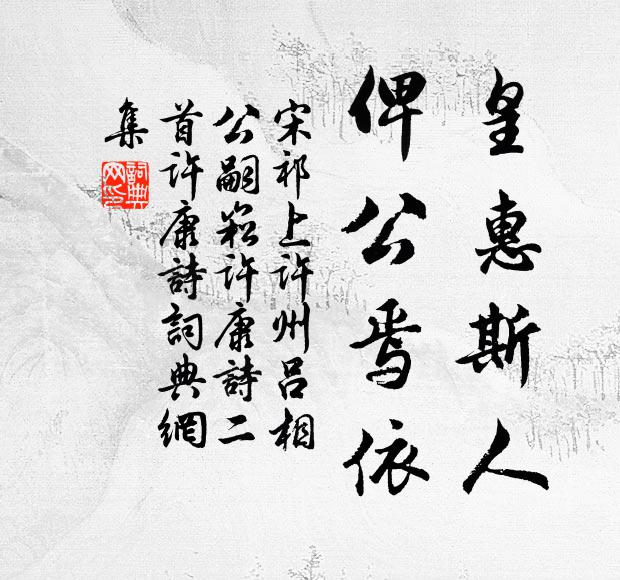 皇惠斯人
俾公焉依
宋祁上许州吕相
公嗣崧许康詩二
首许康詩詞典網
集
詞典網印